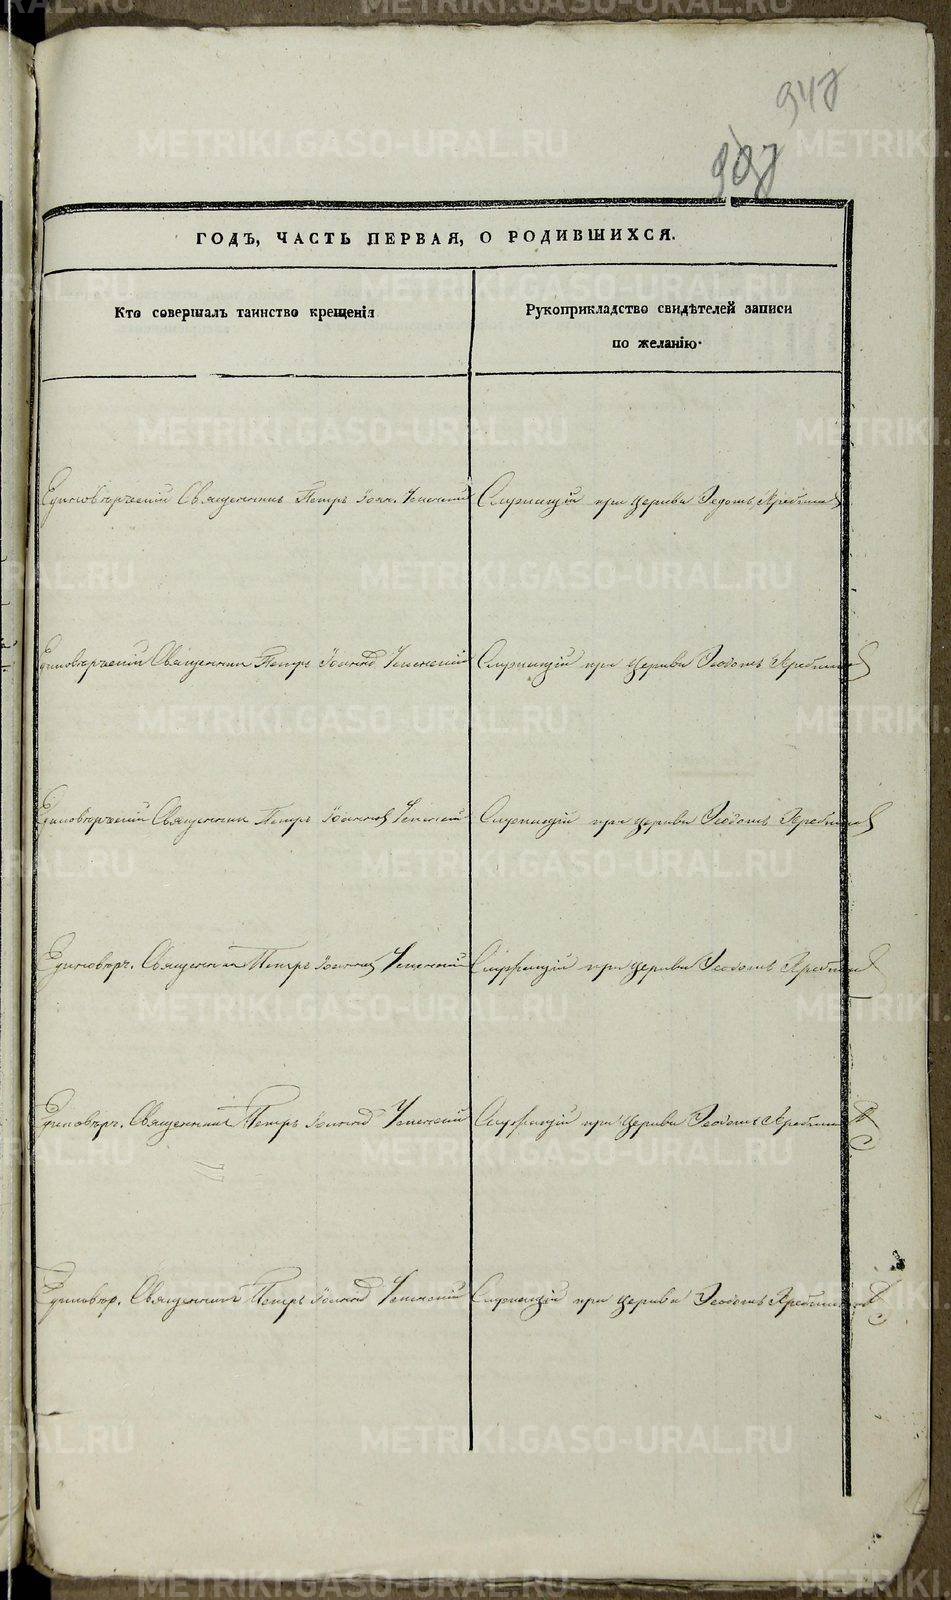 947
907
ГОДЪ, ЧАСТЬ ПЕРВАЯ, О РОДИВШИХСЯ.
Кто совершалъ таинство крещенія
Рукоприкладство свидѣтелей записи
по желанію.
Единовѣрческій Священникъ Петръ Іоан. Успенскій Служащій при церкви Федотъ
Единовѣрческій Священникъ Петръ Іоанновъ Успенскій Служащій при церкви Ѳеодотъ
Единовѣрческій Священникъ Петръ Іоанновъ Успенскій Служащій при церкви Ѳеодотъ
Единовѣрч. Священникъ Петръ Іоанновъ Успенскій Служащій при церкви Ѳеодотъ
Единовѣрч. Священникъ Петръ Іоанновъ Успенскій Служащій при церкви Ѳеодотъ
Единовѣр. Священникъ Петръ Іоанновъ Успенскій Служащій при церкви Ѳеодотъ
METRIKI.GASO-URAL.RU